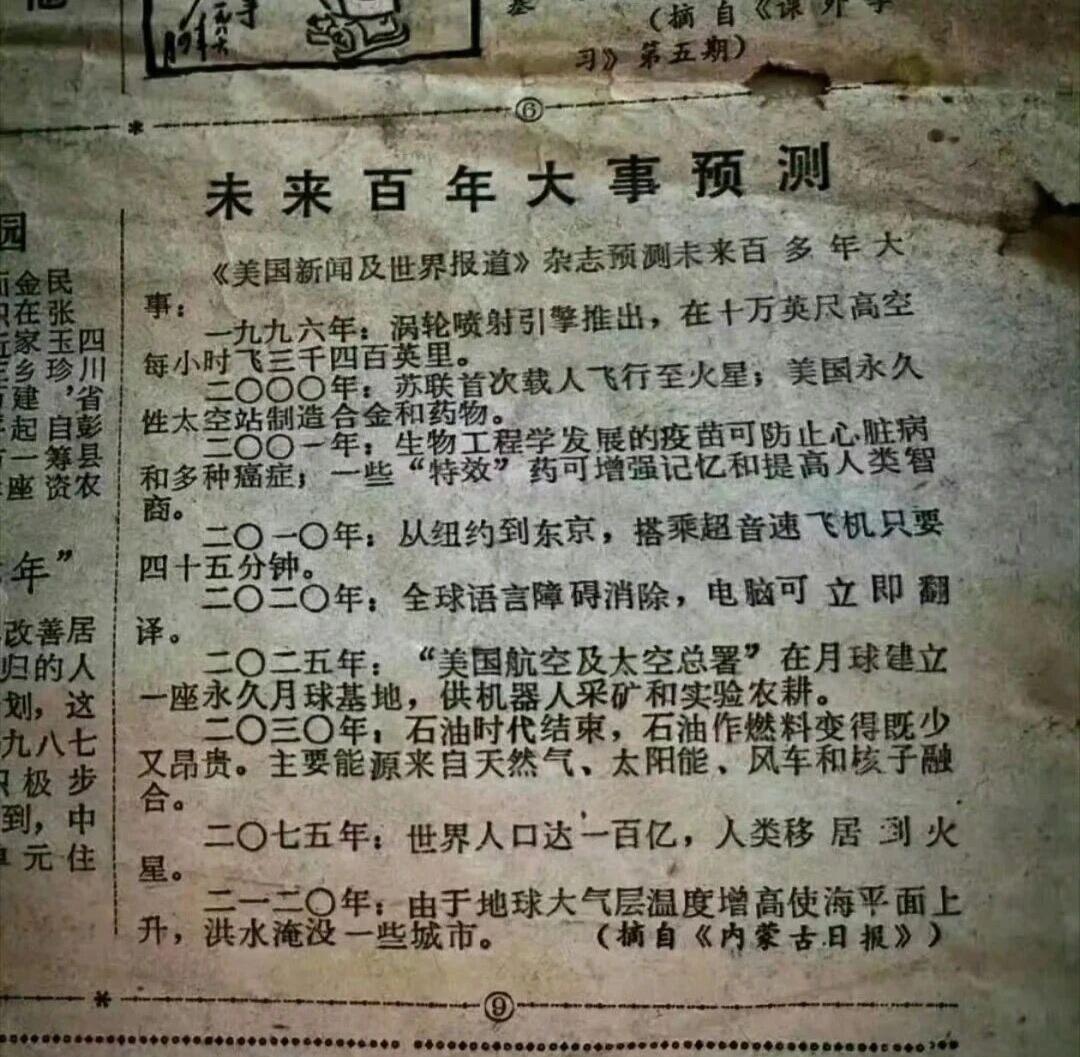 (摘自《课外学
习》第五期)
⑥
未来百年大事预测
《美国新闻及世界报道》杂志预测未来百多年大
事:
一九九六年:涡轮喷射引擎推出,在十万英尺高空
每小时飞三千四百英里。
二〇〇〇年:苏联首次载人飞行至火星;美国永久
性太空站制造合金和药物。
二〇〇一年:生物工程学发展的疫苗可防止心脏病
和多种癌症;一些“特效”药可增强记忆和提高人类智
商。
二〇一〇年:从纽约到东京,搭乘超音速飞机只要
四十五分钟。
二〇二〇年:全球语言障碍消除,电脑可立即翻
译。
二〇二五年:“美国航空及太空总署”在月球建立
一座永久月球基地,供机器人采矿和实验农耕。
二〇三〇年:石油时代结束,石油作燃料变得既少
又昂贵。主要能源来自天然气、太阳能、风车和核子融
合。
二〇七五年:世界人口达一百亿,人类移居到火
星。
二一二〇年:由于地球大气层温度增高使海平面上
升,洪水淹没一些城市。(摘自《内蒙古日报》)
⑨
园
金民
在张
家玉四
乡珍川
建,省
起自彭
一筹县
座资农
年”
改善居
归的人
划,这
九八七
极步
到,中
元住